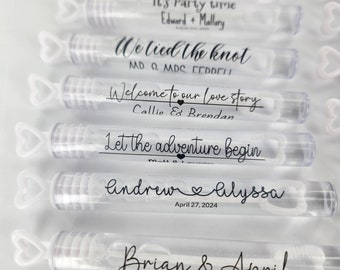 It's Party time
Edward + Mallory
We tied the knot
MR. & MRS. FERRELL
Welcome to our love story
Callie & Brendan
Let the adventure begin
Andrew Alyssa
April 27, 2024
Brian & April